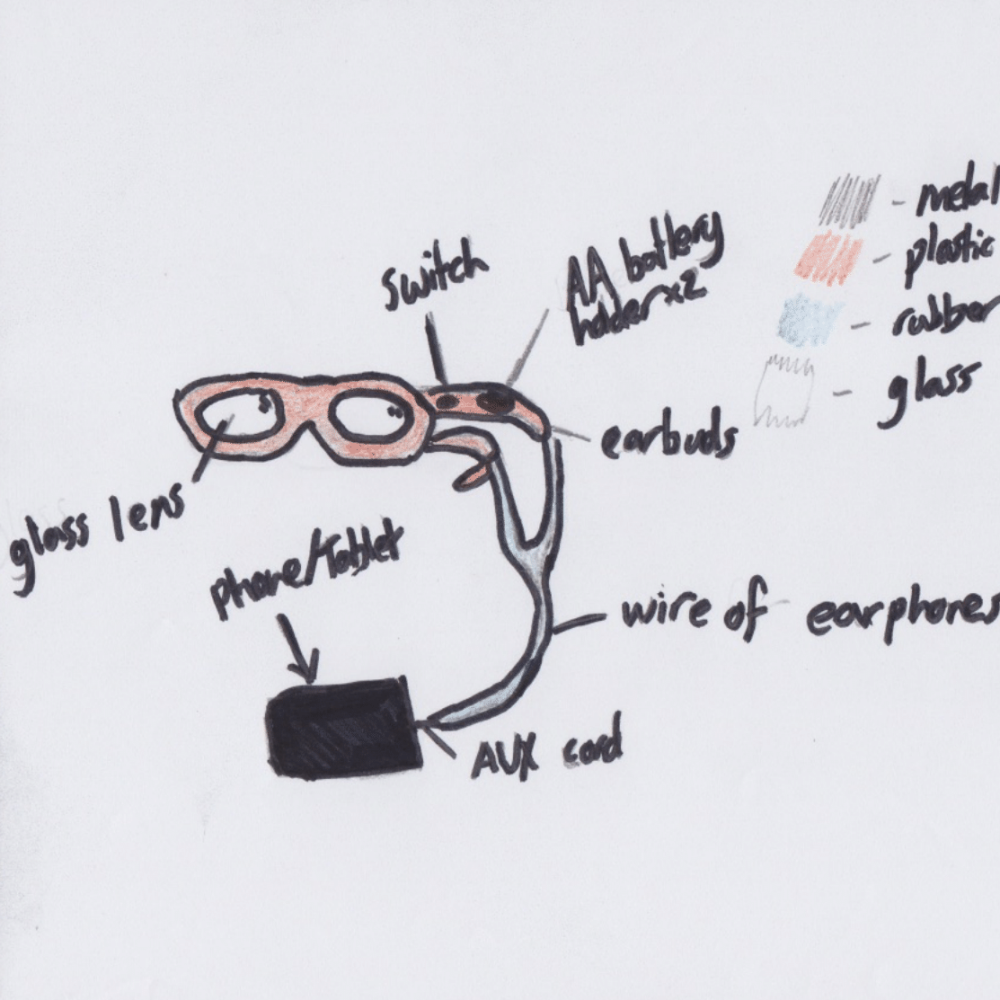 - metal
- plastic
- rubber
- glass
switch
AA battery
holder x2
earbuds
glass lens
phone/Tablet
wire of earphones
AUX cord